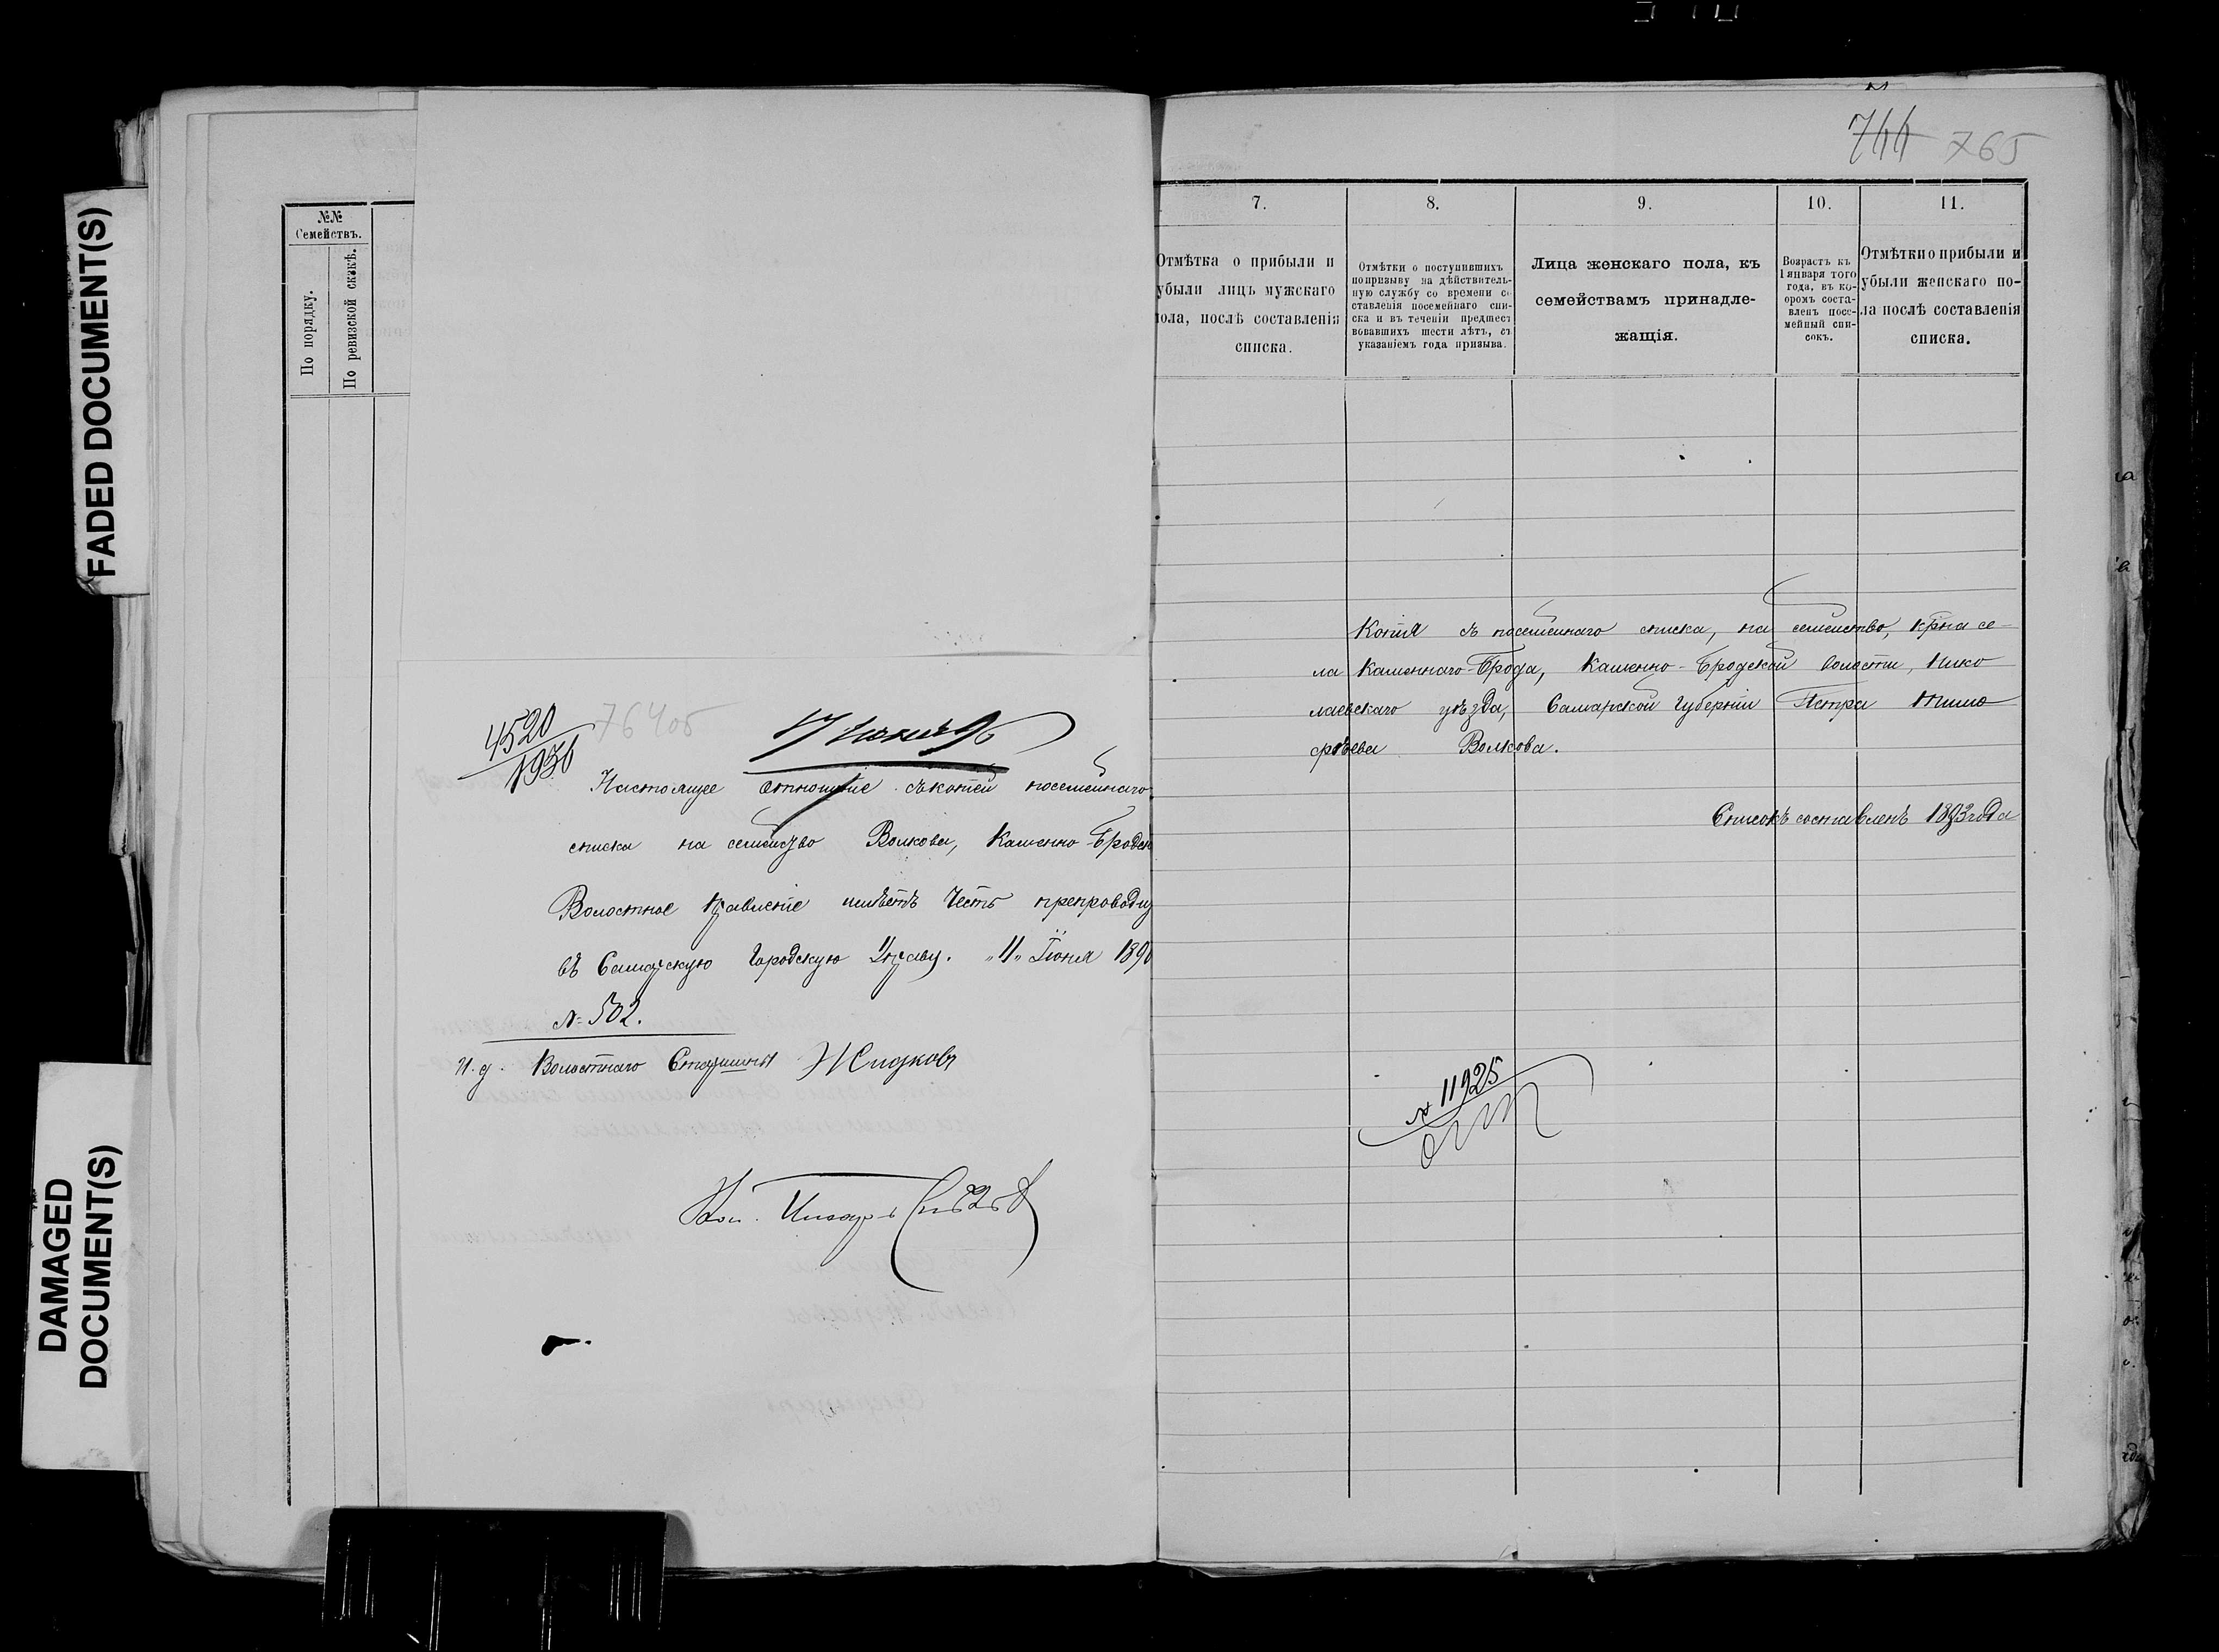 FADED DOCUMENT(S)
DAMAGED
DOCUMENT(S)
№№
Семействъ.
По порядку.
По ревизской скзкѣ.
4520
1936
76405
17 Июня 96
Настоящее отношение съ копіей посемейнаго
списка на семейство Волкова, Каменно-Бродск
Волостное Правленіе имѣетъ честь препроводит
въ Самарскую Городскую Управу. „11„ Іюня 189
№ 502.
И. д. Волостнаго Старшины Жидковъ
744 765
7.
8.
9.
10.
11.
Отмѣтка о прибыли и
убыли лицъ мужскаго
пола, послѣ составленія
списка.
Отмѣтки о поступившихъ
по призыву на дѣйствитель-
ную службу со времени со
ставленія посемейнаго спи-
ска и въ теченіи предшест
вовавшихъ шести лѣтъ, съ
указаніемъ года призыва.
Лица женскаго пола, къ
семействамъ принадле-
жащія.
Возрастъ къ
1 января того
года, въ ко-
оромъ соста-
вленъ посе-
мейный спи-
сокъ.
Отмѣтки о прибыли и
убыли женскаго по-
ла послѣ составленія
списка.
Копія съ посемейнаго списка, на семейство, крна се-
ла Каменнаго-Брода, Каменно-Бродской волости, Нико
лаевскаго уѣзда, Самарской Губерніи Петра Тимо
фѣева Волкова.
Списокъ составленъ 1893 года
№ 11925